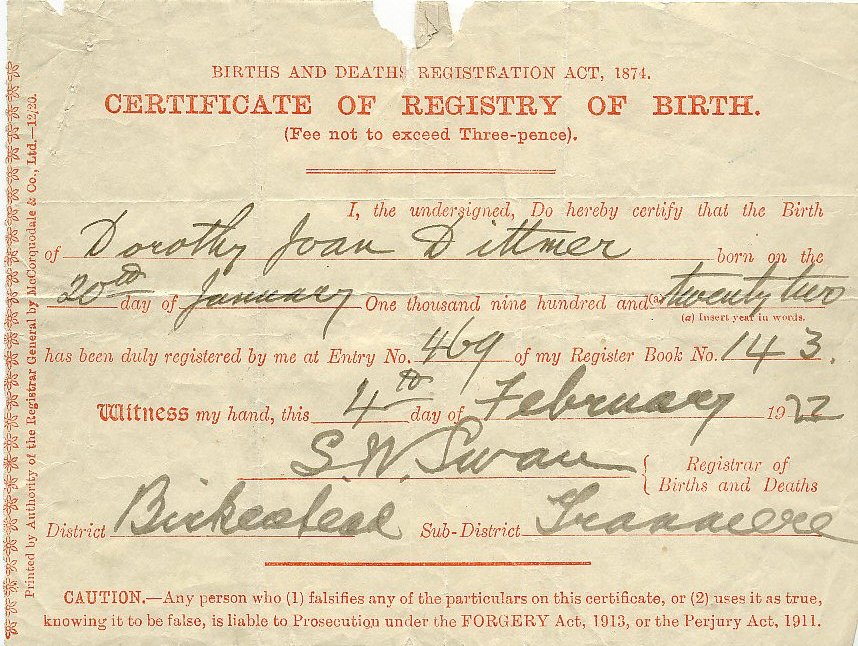 BIRTHS AND DEATHS REGISTRATION ACT, 1874.
CERTIFICATE OF REGISTRY OF BIRTH.
(Fee not to exceed Three-pence).
I, the undersigned, Do hereby certify that the Birth
of Dorothy Joan Dittmer born on the
20th day of January One thousand nine hundred and (a) twenty two
(a) Insert year in words.
has been duly registered by me at Entry No. 469 of my Register Book No. 143.
Witness my hand, this 4th day of February 1922
S.W. Swan { Registrar of
Births and Deaths
District Birkenhead Sub-District Tranmere
CAUTION.—Any person who (1) falsifies any of the particulars on this certificate, or (2) uses it as true,
knowing it to be false, is liable to Prosecution under the FORGERY Act, 1913, or the Perjury Act, 1911.
Printed by Authority of the Registrar General by McCorquodale & Co., Ltd.—12/20.